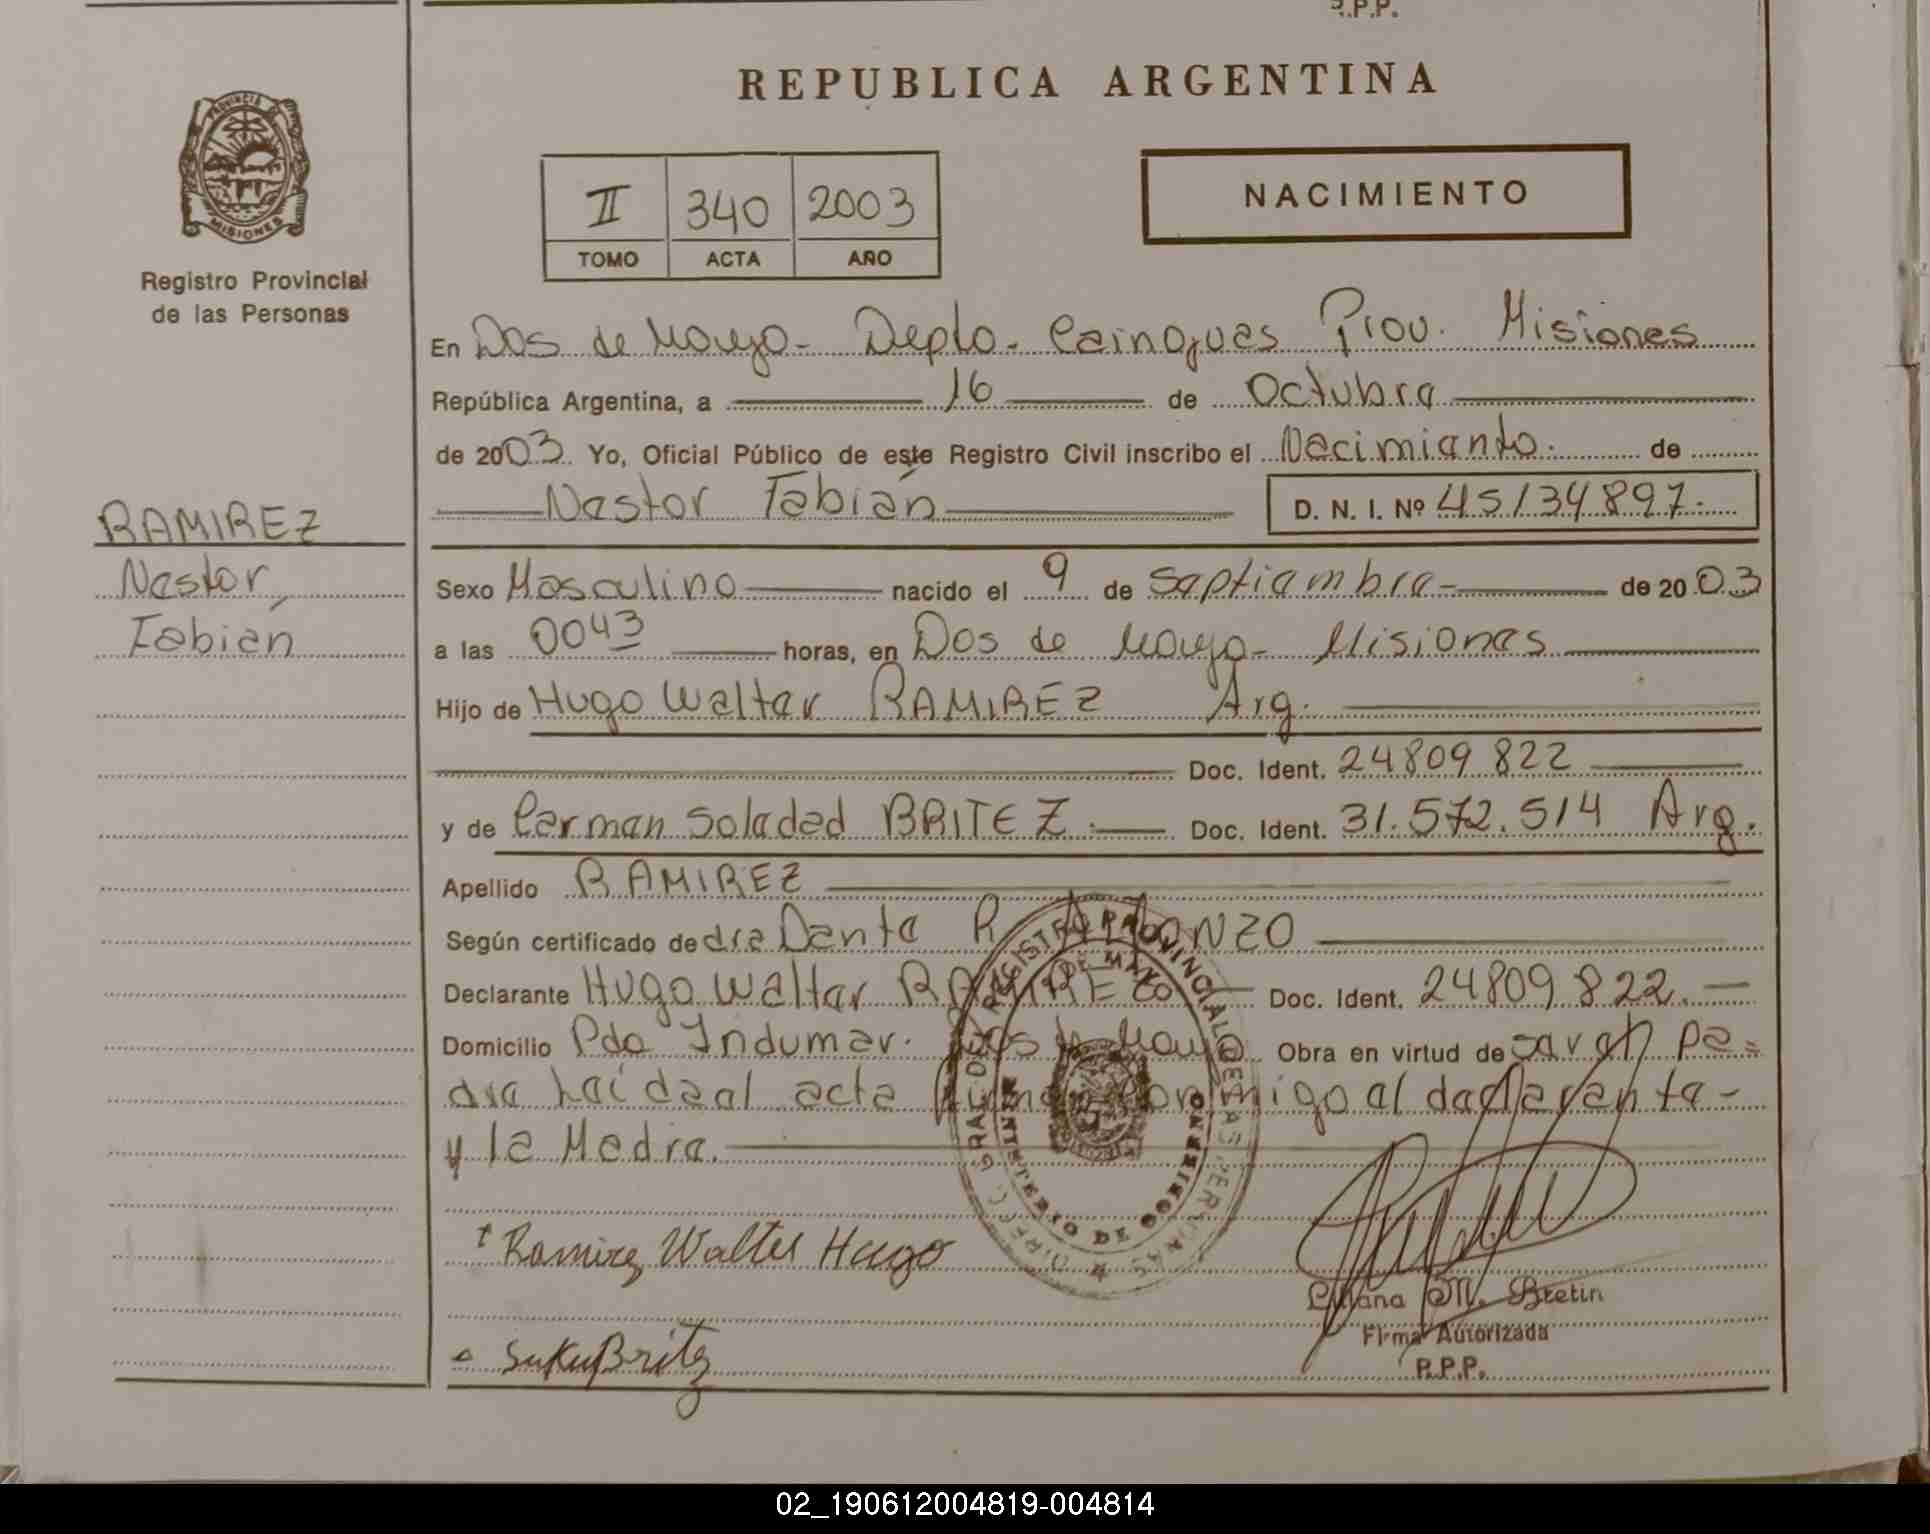 R.P.P.
REPUBLICA ARGENTINA
PROVINCIA DE
MISIONES
Registro Provincial
de las Personas
II 340 2003
TOMO ACTA AÑO
NACIMIENTO
En Dos de Mayo- Depto- Cainguas Prov. Misiones
República Argentina, a 16 de Octubre
de 2003. Yo, Oficial Público de este Registro Civil inscribo el Nacimiento. de
Nestor Fabián D. N. I. Nº 45134897.
RAMIREZ
Nestor
Fabián
Sexo Masculino nacido el 9 de Septiembre- de 2003
a las 0043 horas, en Dos de Mayo- Misiones
Hijo de Hugo Walter RAMIREZ Arg.
Doc. Ident. 24809822
y de Carmen Soledad BRITEZ. Doc. Ident. 31.572.514 Arg.
Apellido RAMIREZ
Según certificado de dre Dante R. ALONZO
Declarante Hugo Walter RAMIREZ Doc. Ident. 24809822.
Domicilio Pdo Indumar. Dos de Mayo Obra en virtud de ser el pa=
dre Leida el acta firman conmigo el declarante-
y la Madre.
DIREC. GRAL. DEL REGISTRO PROVINCIAL DE LAS PERSONAS
DOS DE MAYO
MINISTERIO DE GOBIERNO
Ramirez Walter Hugo
Liliana M. Bretin
Firma Autorizada
R.P.P.
02_190612004819-004814